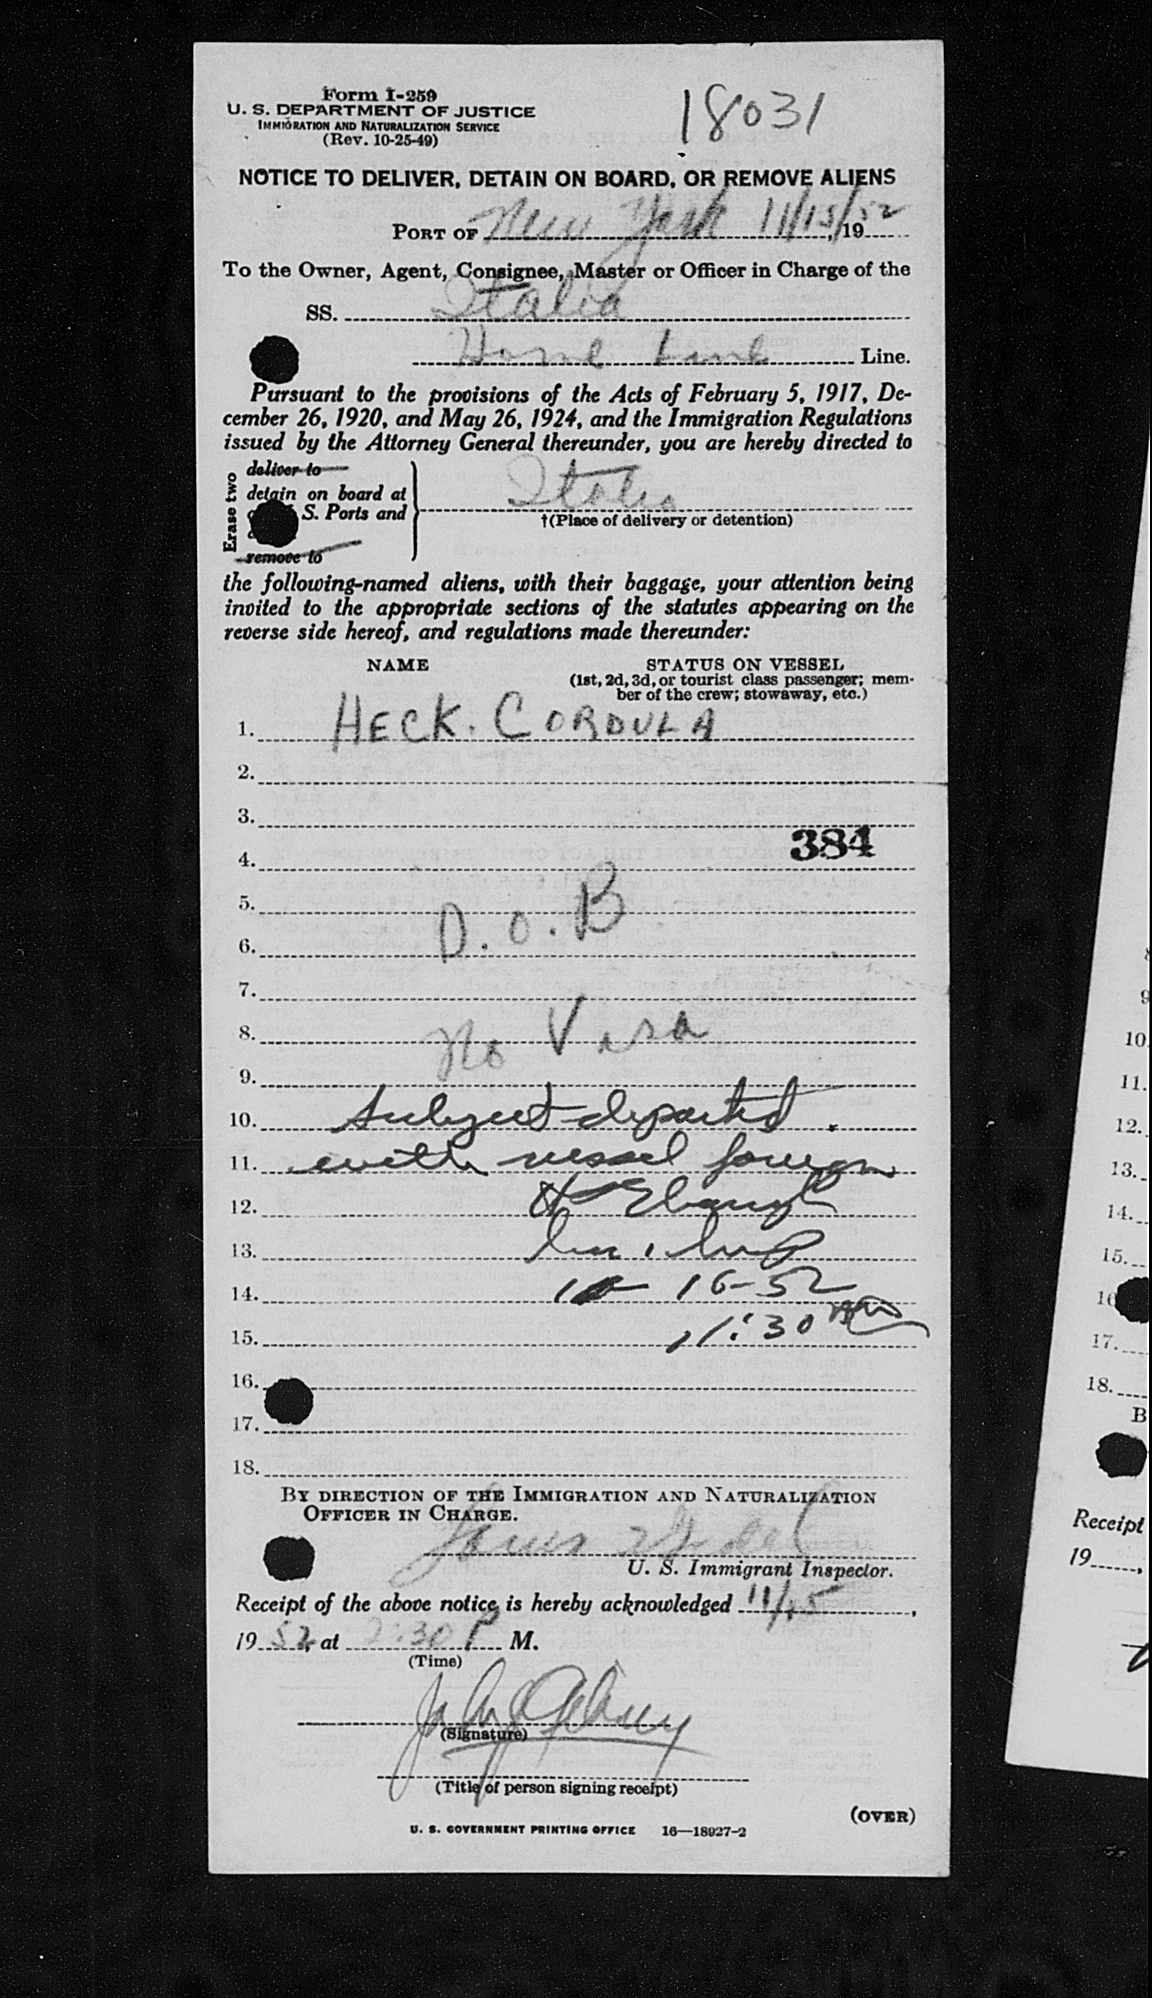 Form I-259
U. S. DEPARTMENT OF JUSTICE
IMMIGRATION AND NATURALIZATION SERVICE
(Rev. 10-25-49)
18031
NOTICE TO DELIVER, DETAIN ON BOARD, OR REMOVE ALIENS
PORT OF New York 11/15/52, 19
To the Owner, Agent, Consignee, Master or Officer in Charge of the
SS. Italia
Home Line Line.
Pursuant to the provisions of the Acts of February 5, 1917, De-
cember 26, 1920, and May 26, 1924, and the Immigration Regulations
issued by the Attorney General thereunder, you are hereby directed to
Erase two
deliver to
detain on board at
S. Ports and
remove to
Italia
†(Place of delivery or detention)
the following-named aliens, with their baggage, your attention being
invited to the appropriate sections of the statutes appearing on the
reverse side hereof, and regulations made thereunder:
NAME
STATUS ON VESSEL
(1st, 2d, 3d, or tourist class passenger; mem-
ber of the crew; stowaway, etc.)
1. HECK. CORDULA
2.
3.
384
4.
5.
D.O.B
6.
7.
8. No Visa
9.
10. Subject departed
11. with vessel foreign
12. Ebaugh
13.
14. 16-52
15. 11:30 AM
16.
17.
18.
BY DIRECTION OF THE IMMIGRATION AND NATURALIZATION
OFFICER IN CHARGE.
Louis
U. S. Immigrant Inspector.
Receipt of the above notice is hereby acknowledged 11/15,
19 52, at 2:30 P M.
(Time)
(Signature)
(Title of person signing receipt)
(OVER)
U. S. GOVERNMENT PRINTING OFFICE 16—18927-2
10.
11.
12.
13.
14.
15.
17.
18.
B
Receipt
19